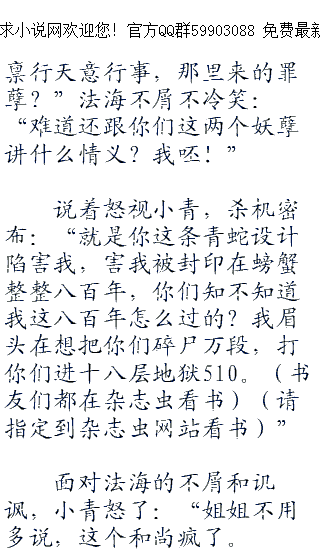 求小说网欢迎您！官方QQ群59903088 免费最新
禀行天意行事，那里来的罪
孽？”法海不屑不冷笑：
“难道还跟你们这两个妖孽
讲什么情义？我呸！”
说着怒视小青，杀机密
布：“就是你这条青蛇设计
陷害我，害我被封印在螃蟹
整整八百年，你们知不知道
我这八百年怎么过的？我眉
头在想把你们碎尸万段，打
你们进十八层地狱510。（书
友们都在杂志虫看书）（请
指定到杂志虫网站看书）”
面对法海的不屑和讥
讽，小青怒了：“姐姐不用
多说，这个和尚疯了。